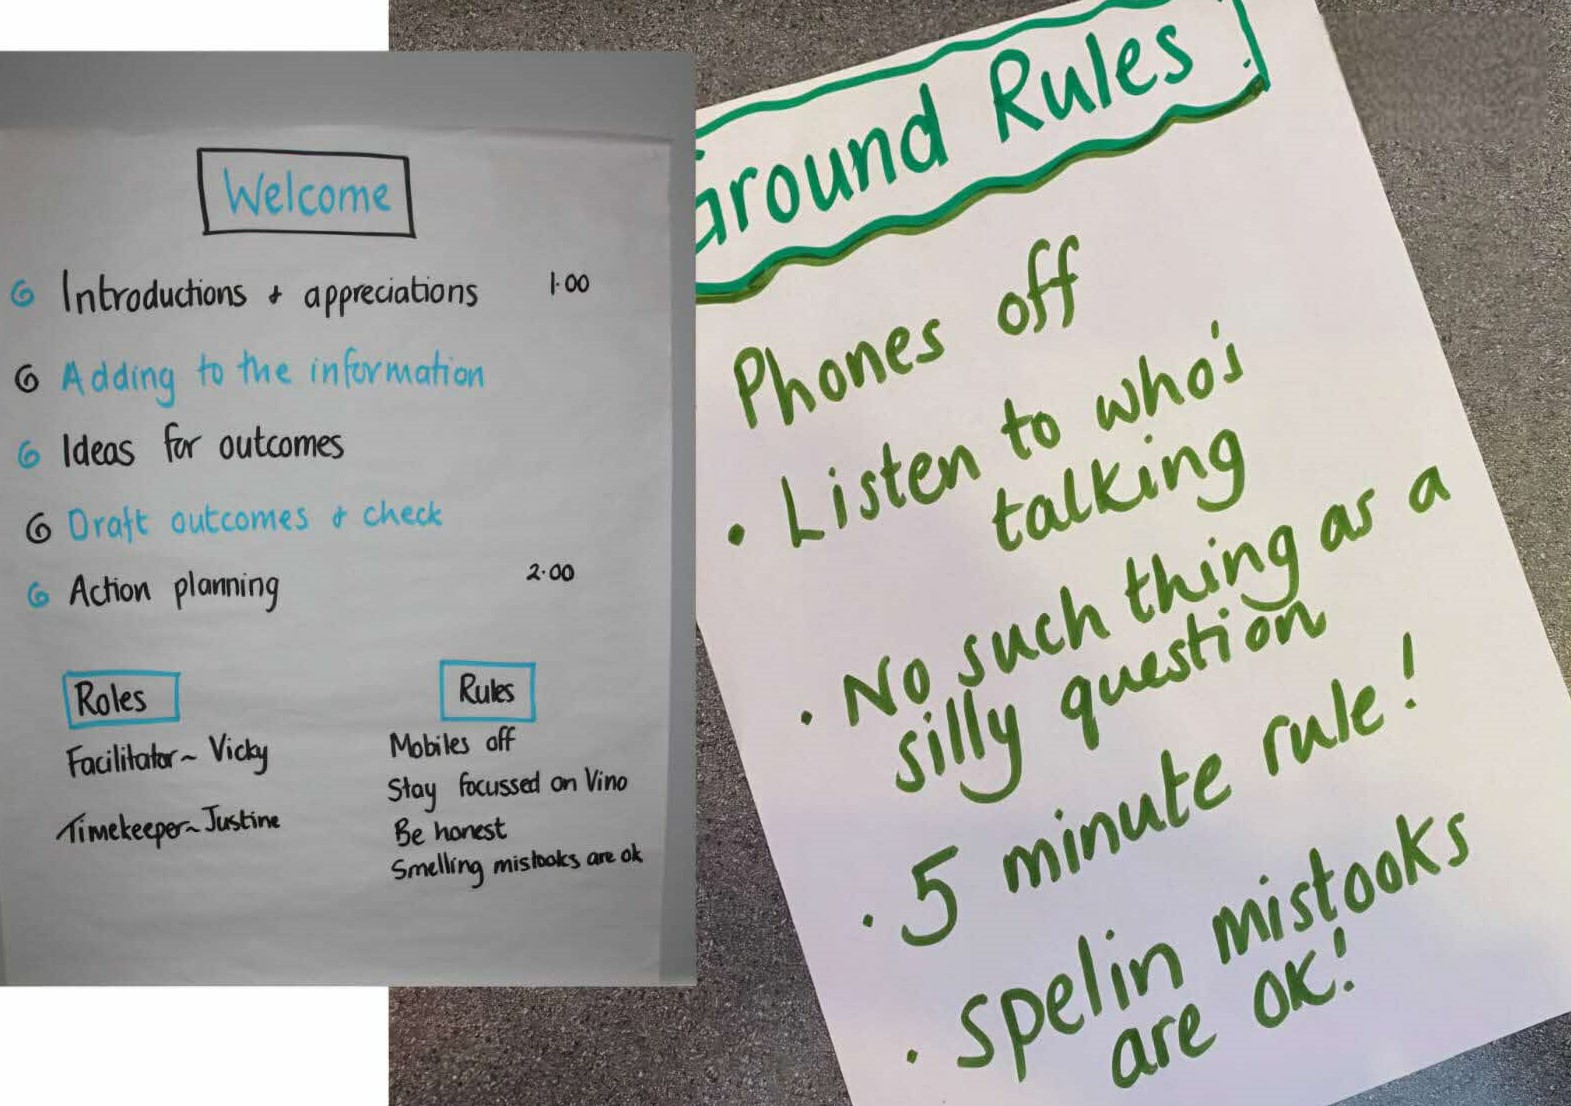 Welcome
Introductions + appreciations 1.00
Adding to the information
Ideas for outcomes
Draft outcomes & check
Action planning 2.00
Roles
Facilitator ~ Vicky
Timekeeper ~ Justine
Rules
Mobiles off
Stay focussed on Vino
Be honest
Smelling mistooks are ok
Ground Rules
Phones off
• Listen to who's
talking
• No such thing as a
silly question
• 5 minute rule!
• spelin mistooks
are OK!